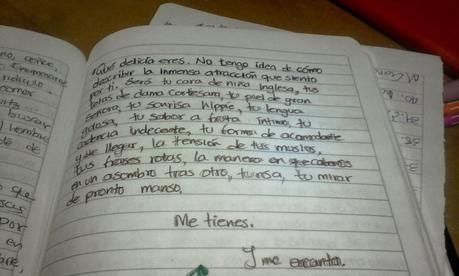 Qué delicia eres. No tengo idea de cómo
describir la inmensa atracción que siento
por ti. Será tu cara de niña inglesa, tus
tetas de dama cortesana, tu piel de gran
señora, tu sonrisa hippie, tu lengua
golosa, tu sabor a fruta íntima, tu
cadencia indecente, tu forma de acomodarte
y de llegar, la tensión de tus muslos,
tus frases rotas, la manera en que
en un asombro tras otro, tu risa, tu mirar
de pronto manso.
Me tienes.
Y me encanta.
no, cence,
ridículo
buscar
hombre
de de
Por
en